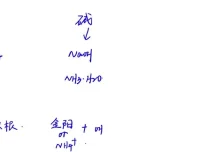 碱
↓
NaOH
NH₃·H₂O
根. 金阳 + OH
or
NH₄⁺